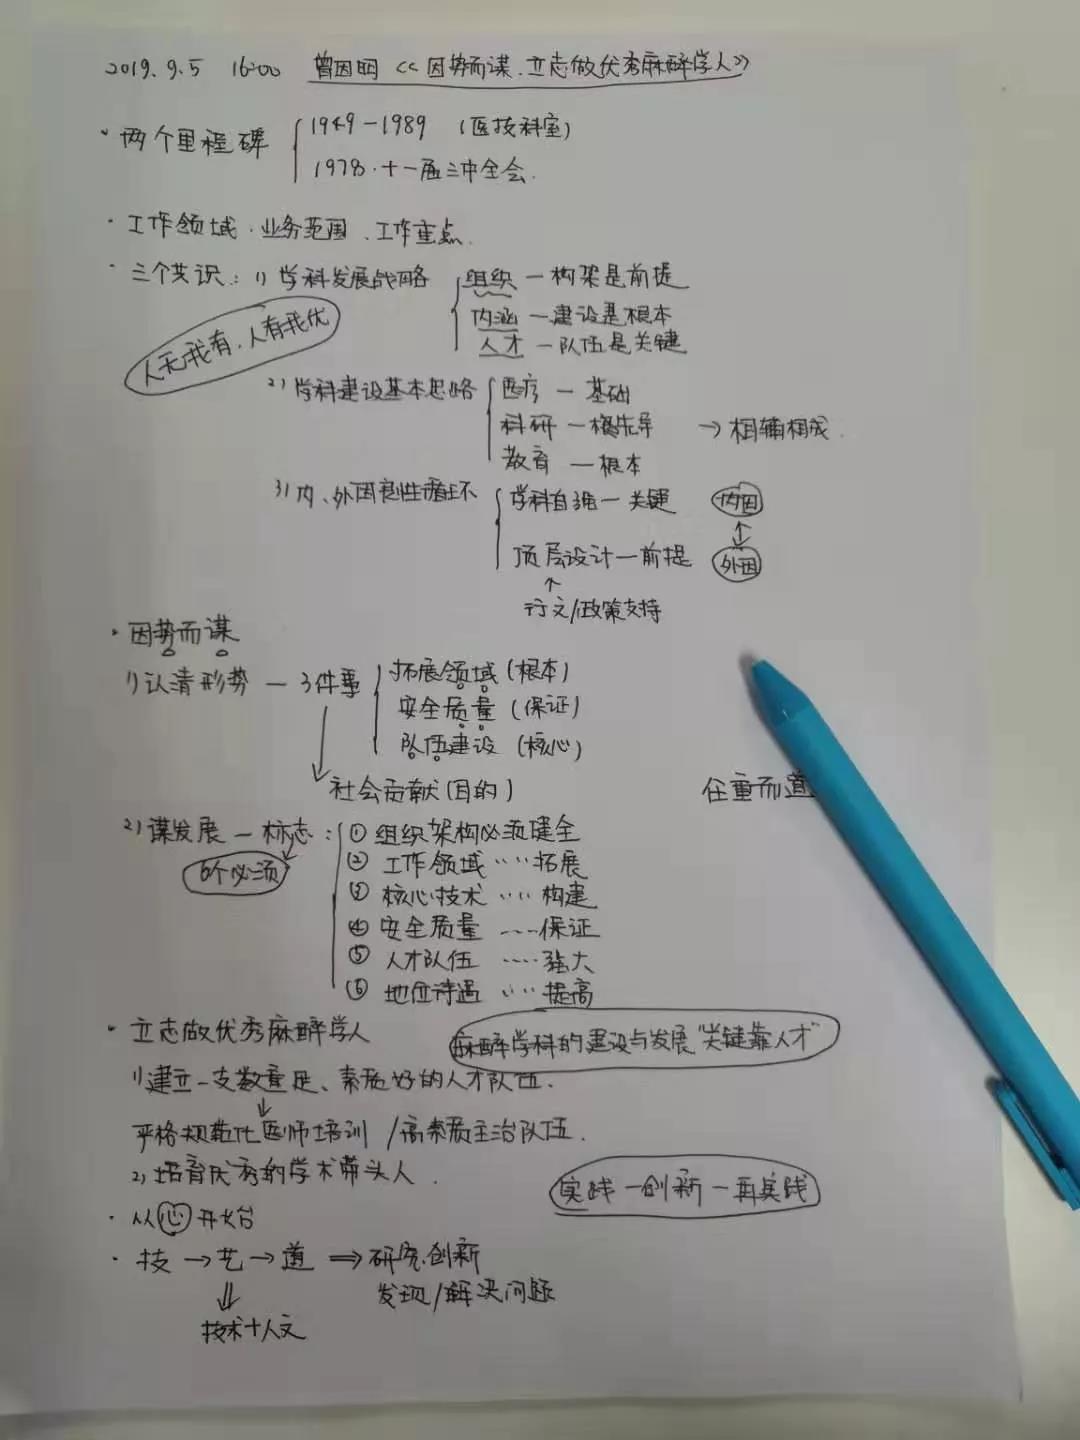 2019.9.5 16:00 曾因明《因势而谋.立志做优秀麻醉学人》
· 两个里程碑 1949-1989 (医技科室)
1978.十一届三中全会.
· 工作领域.业务范围、工作重点.
· 三个共识: 1) 学科发展战略 组织—构架是前提
内涵—建设是根本
人才—队伍是关键
人无我有,人有我优
2) 学科建设基本思路 医疗—基础
科研—先导 → 相辅相成.
教育—根本
3) 内、外因良性循环 学科自强—关键 内因
↕
顶层设计—前提 外因
↑
行文/政策支持
· 因势而谋
1) 认清形势—3件事 拓展领域(根本)
安全质量(保证)
队伍建设(核心)
社会贡献(目的) 任重而道
2) 谋发展—标志: ① 组织架构必须健全
6个必须 ② 工作领域 ···· 拓展
③ 核心技术 ···· 构建
④ 安全质量 ···· 保证
⑤ 人才队伍 ···· 强大
⑥ 地位待遇 ···· 提高
· 立志做优秀麻醉学人 麻醉学科的建设与发展"关键靠人才"
1) 建立一支数量足、素质好的人才队伍.
↓
严格规范化医师培训/高素质主治队伍.
2) 培育优秀的学术带头人. 实践—创新—再实践
· 从心开始
· 技→艺→道 ⇒ 研究.创新
⇓ 发现/解决问题
技术+人文